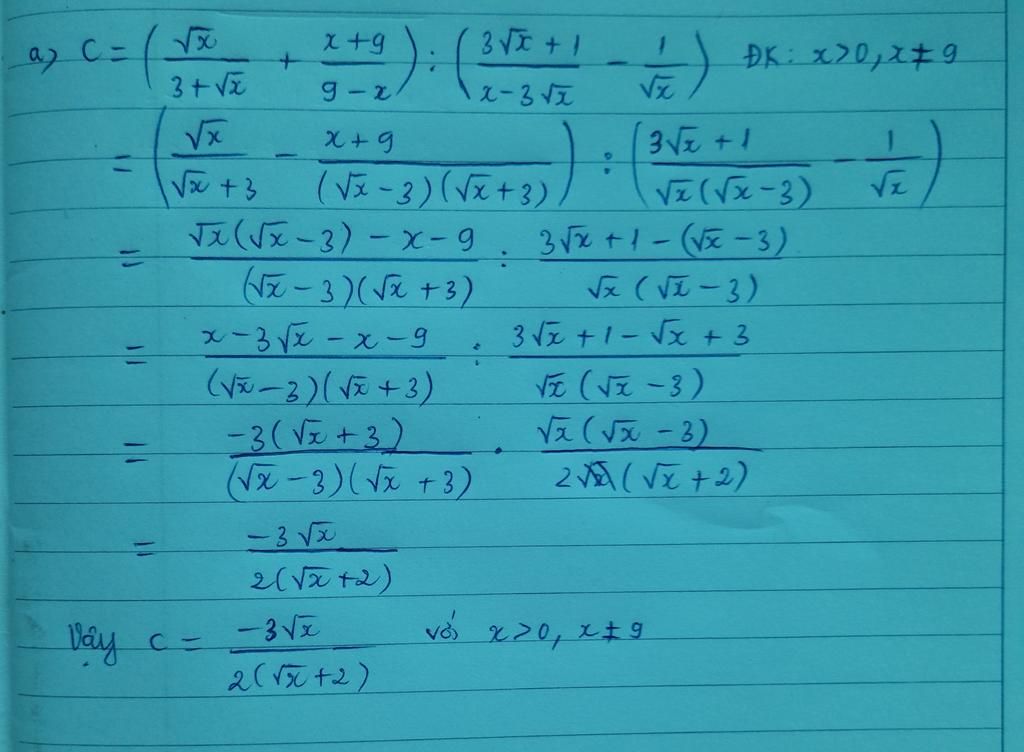 a) C = (√x/(3+√x) + (x+9)/(9-x)) : ((3√x+1)/(x-3√x) - 1/√x) ĐK: x>0, x≠9
= (√x/(√x+3) - (x+9)/((√x-3)(√x+3))) : ((3√x+1)/(√x(√x-3)) - 1/√x)
= (√x(√x-3)-x-9)/((√x-3)(√x+3)) : (3√x+1-(√x-3))/(√x(√x-3))
= (x-3√x-x-9)/((√x-3)(√x+3)) : (3√x+1-√x+3)/(√x(√x-3))
= (-3(√x+3))/((√x-3)(√x+3)) . (√x(√x-3))/(2(√x+2))
= (-3√x)/(2(√x+2))
Vậy C = (-3√x)/(2(√x+2)) với x>0, x≠9